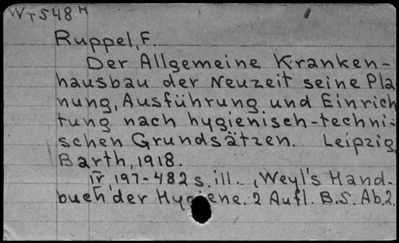 WT548H
Ruppel, F.
Der Allgemeine Kranken-
hausbau der Neuzeit seine Pla
nung, Ausführung und Einrich
tung nach hygienisch-techni-
schen Grundsätzen. Leipzig,
Barth, 1918.
IV, 197-482 s. ill. (Weyl's Hand-
buch der Hygiene. 2 Aufl. B.5. Ab.2